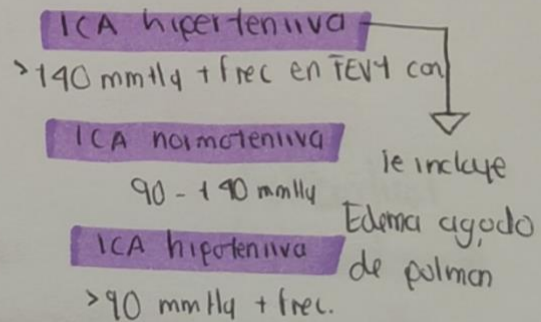 ICA hipertensiva
>140 mmHg + frec en FEVI con
ICA normotensiva
90 - 140 mmHg
ICA hipotensiva
>90 mmHg + frec.
se incluye
Edema agudo
de pulmon